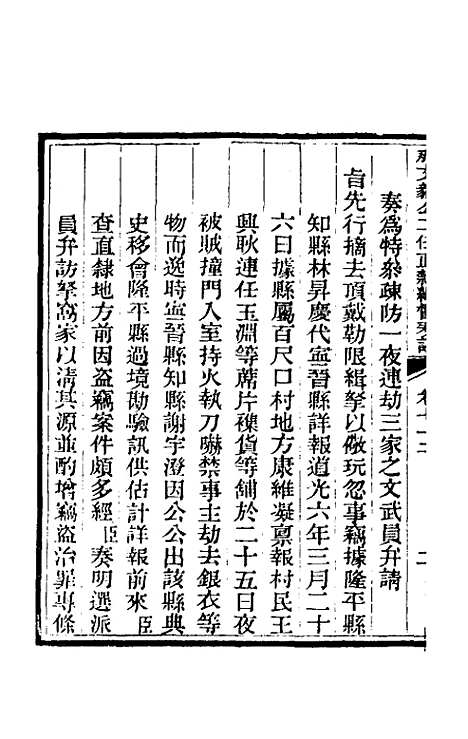 奏爲特叅疎防一夜連劫三家之文武員弁請
旨先行摘去頂戴勒限緝拏以儆玩忽事竊據隆平縣
知縣林昇慶代寧晉縣詳報道光六年三月二十
六日據縣屬百尺口村地方康維凝禀報村民王
興耿連任玉淵等蓆片襍貨等舖於二十五日夜
被賊撞門入室持火執刀嚇禁事主劫去銀衣等
物而逸時寧晉縣知縣謝宇澄因公公出該縣典
史移會隆平縣過境勘驗訊供估計詳報前來臣
查直隸地方前因盗竊案件頗多經臣奏明選派
員弁訪拏窩家以清其源並酌增竊盗治罪專條